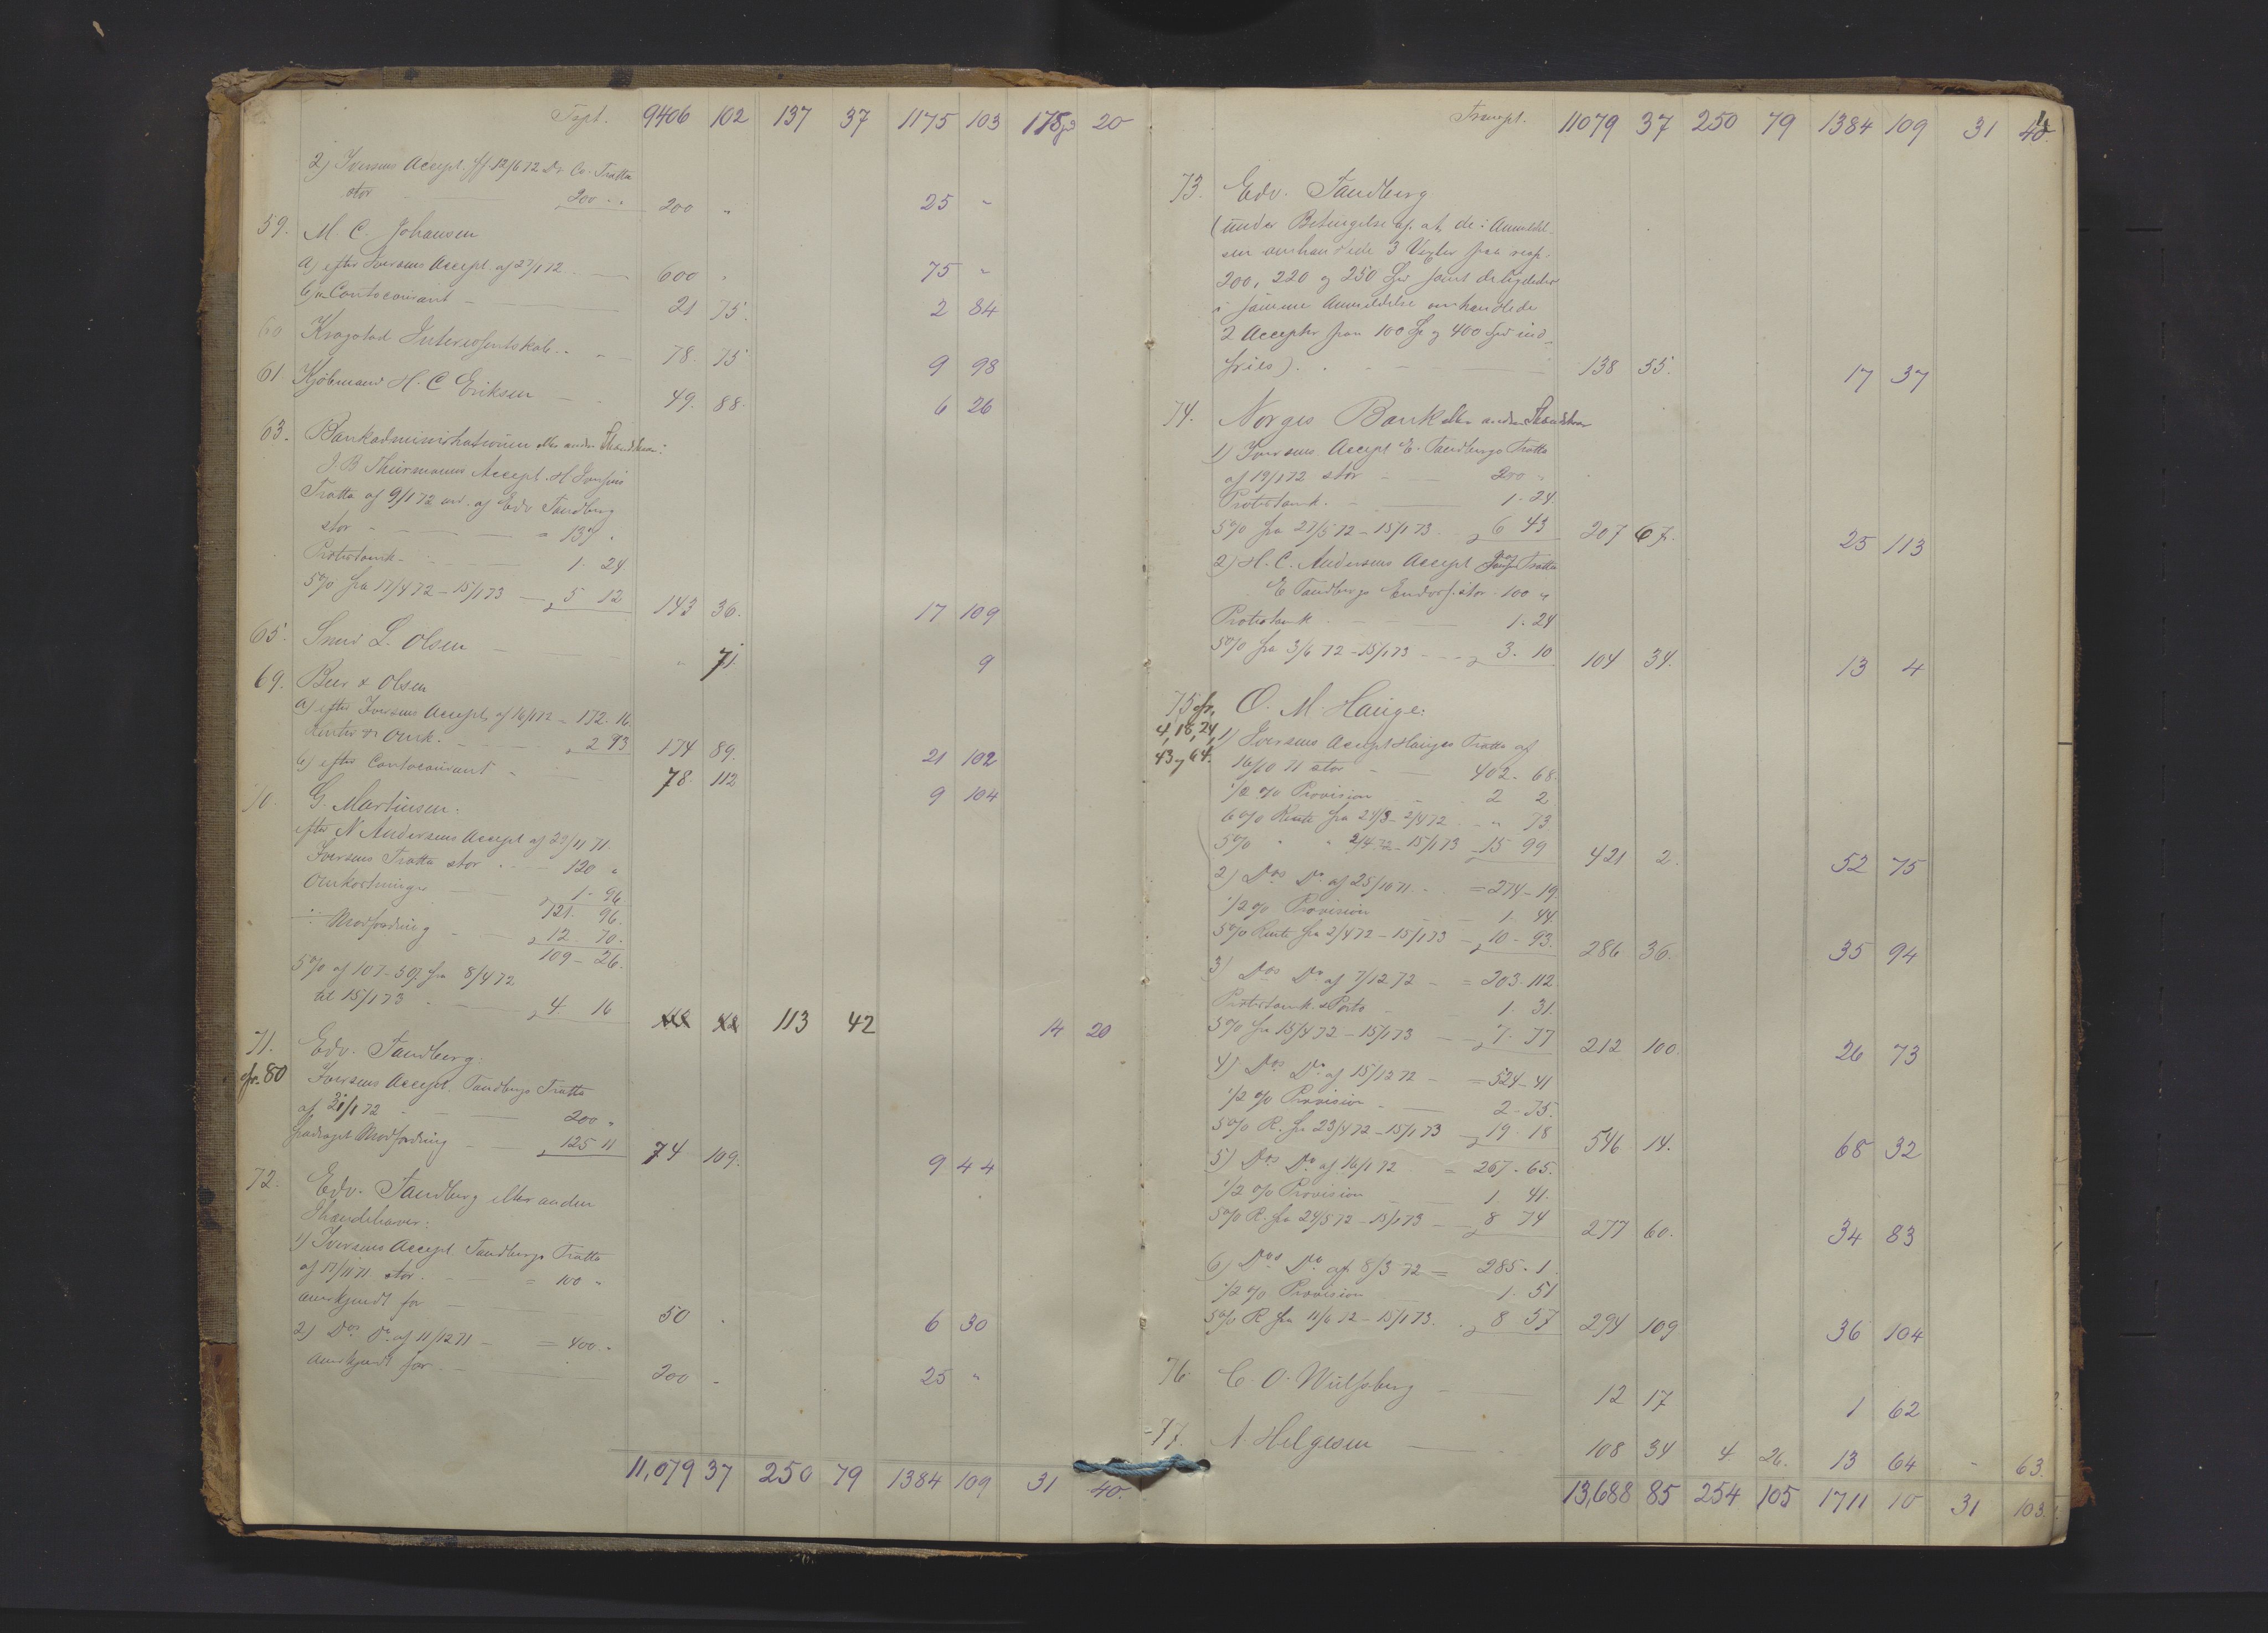 Trpt. 9406 102 137 37 1175 103 20
2) Iversens Accept. 12/6 72 Co. Tratta
stor 200 " " 200 " 25 "
59. M. C. Johansen
a) efter Iversens Accept af 27/1 72 600 " 75 "
b) " Contocourant 21 75. 2 84
60 Kragstad Interessentskab 78. 75 9 98
61 Kjöbmand H. C. Eriksen 49. 88. 6 26
63. Bankadministrationen eller anden Ihændehaver:
J. B. Thurmanns Accept H. Iversens
Tratta af 9/1 72 end. af Edv. Tandberg
stor 137 "
Protestomk. 1. 24
5% fra 17/4 72 – 15/1 73 5 12 143 36. 17 109
65. Smed L. Olsen " 71 9
69. Beer & Olsen
a) efter Iversens Accept af 16/1 72 172. 16.
Renter & Omk. 2 73 174 89. 21 102
b) efter Contocourant 78. 112 9 104
70. G. Martinsen.
efter N. Andersens Accept af 29/11 71
Iversens Tratta stor 120 "
Omkostninger 1. 96
121. 96.
÷ Modfordring 12. 70.
109 – 26.
5% af 107– fra 8/4 72
til 15/1 73 4 16 113 42 14 20
71. Edv. Tandberg.
cfr. 80 Iversens Accept. Tandbergs Tratta
af 31/1 72 200 "
fradraget Modfordring 125 11 74 109. 9 44
72. Edv. Tandberg eller anden
Ihændehaver:
1) Iversens Accept Tandbergs Tratta
af 17/11 71 stor = 100 "
anerkjendt for 50 . 6 30
2) Dos Do af 11/12 71 = 400 "
anerkjendt for 200 – 25 "
11,079 37 250 79 1384 109 31 40.
Transpt. 11079 37 250 79 1384 109 31 40.
73. Edv. Tandberg
(under Betingelse af at de i Anmeldel-
sen omhandlede 3 Vexler paa resp.
200, 220 og 250 Spd samt
i samme Anmeldelse omhandlede
2 Accepter paa 100 Spd og 400 Spd ind-
fries). 138 55. 17 37
74. Norges Bank eller anden Ihændehaver
1) Iversens Accept E. Tandbergs Tratta
af 19/1 72 stor 200 "
Protestomk. 1. 24.
5% fra 27/5 72 – 15/1 73 6 43 207 67. 25 113
2) H. C. Andersens Accept Tratta
E. Tandbergs Endoss. stor 100 "
Protestomk 1. 24
5% fra 3/6 72 – 15/1 73 3. 10 104 34. 13 4
75 cfr. O. M. Hauge:
4, 18, 24, 1) Iversens Accept Hauges Tratta af
43 og 64. 16/10 71 stor 402. 68.
1/2 % Provision 2 2.
6% Rente fra 24/3 – 2/4 72 " 73
5% " " 2/4 72 – 15/1 73 15 99 421 2. 52 75
2) Dos Do af 25/10 71 = 274 – 19.
1/2 % Provision 1. 44.
5% Rente fra 2/4 72 – 15/1 73 10 – 93. 286 36. 35 94
3) Dos Do af 7/12 72 = 203. 112.
Protestomk. & Porto 1. 31.
5% fra 15/4 72 – 15/1 73 7. 77 212 100. 26 73
4) Dos Do af 15/12 72 = 524 – 41
1/2 % Provision 2 – 75.
5% R. fra 23/4 72 – 15/1 73 19. 18 546 14. 68 32
5) Dos Do af 16/1 72 = 267. 65.
1/2 % Provision 1. 41.
5% R. fra 24/5 72 – 15/1 73 8 74 277 60. 34 83
6) Dos Do af 8/3 72 = 285. 1.
1/2 % Provision 1. 51
5% R. fra 11/6 72 – 15/1 73. 8 57 294 109 36 104
76. C. O. Wulfsberg 12 17 1 62
77. A. Helgesen 108 34 4. 26. 13 64 – 63.
13,688 85 254 105 1711 10 31 103.